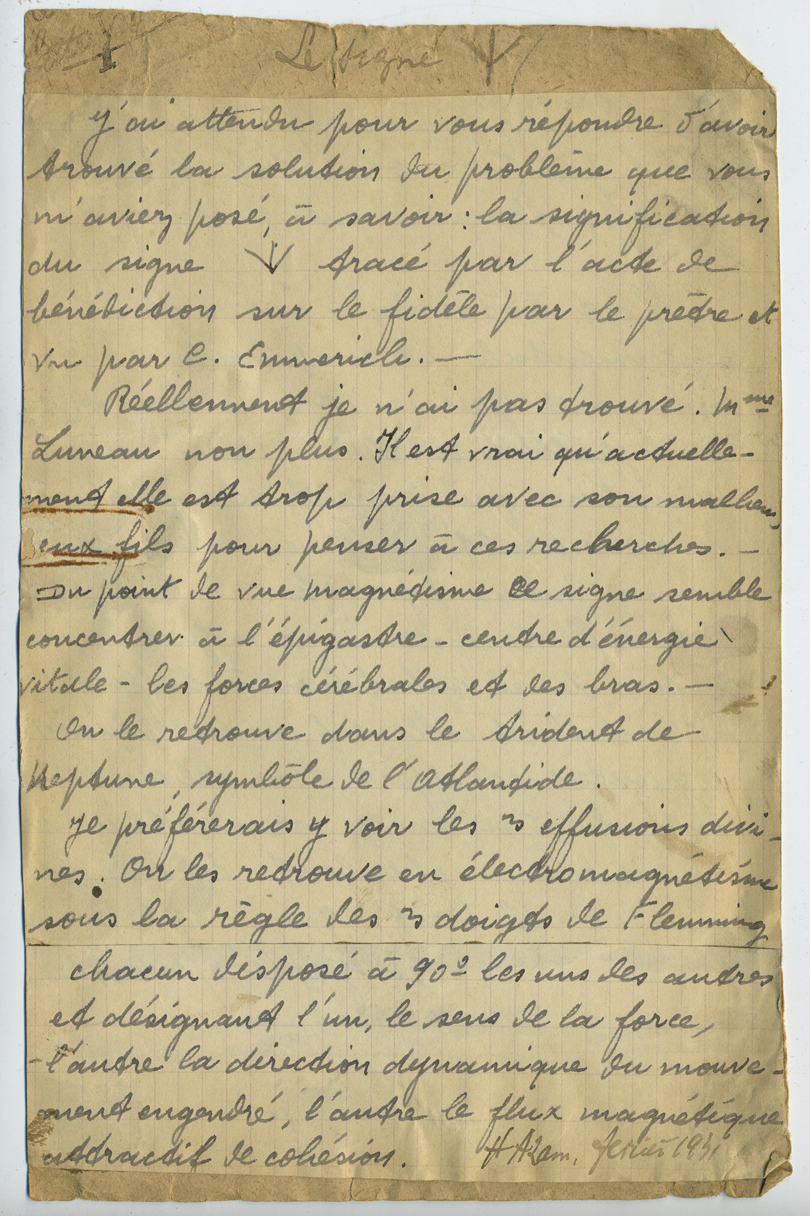 Le signe
J'ai attendu pour vous répondre d'avoir
trouvé la solution du problème que vous
m'aviez posé, à savoir : la signification
du signe tracé par l'acte de
bénédiction sur le fidèle par le prêtre et
vu par C. Emmerich. —
Réellement je n'ai pas trouvé. Mme
Luneau non plus. Il est vrai qu'actuelle-
ment elle est trop prise avec son malheu
eux fils pour penser à ces recherches. —
Du point de vue magnétisme ce signe semble
concentrer à l'épigastre - centre d'énergie
vitale - les forces cérébrales et des bras. —
On le retrouve dans le trident de
Neptune, symbôle de l'Atlantide.
Je préférerais y voir les 3 effusions divi-
nes. On les retrouve en électromagnétisme
sous la règle des 3 doigts de Flemming
chacun disposé à 90° les uns des autres
et désignant l'un, le sens de la force,
l'autre la direction dynamique du mouve-
ment engendré, l'autre le flux magnétique
attractif de cohésion. H Azam, février